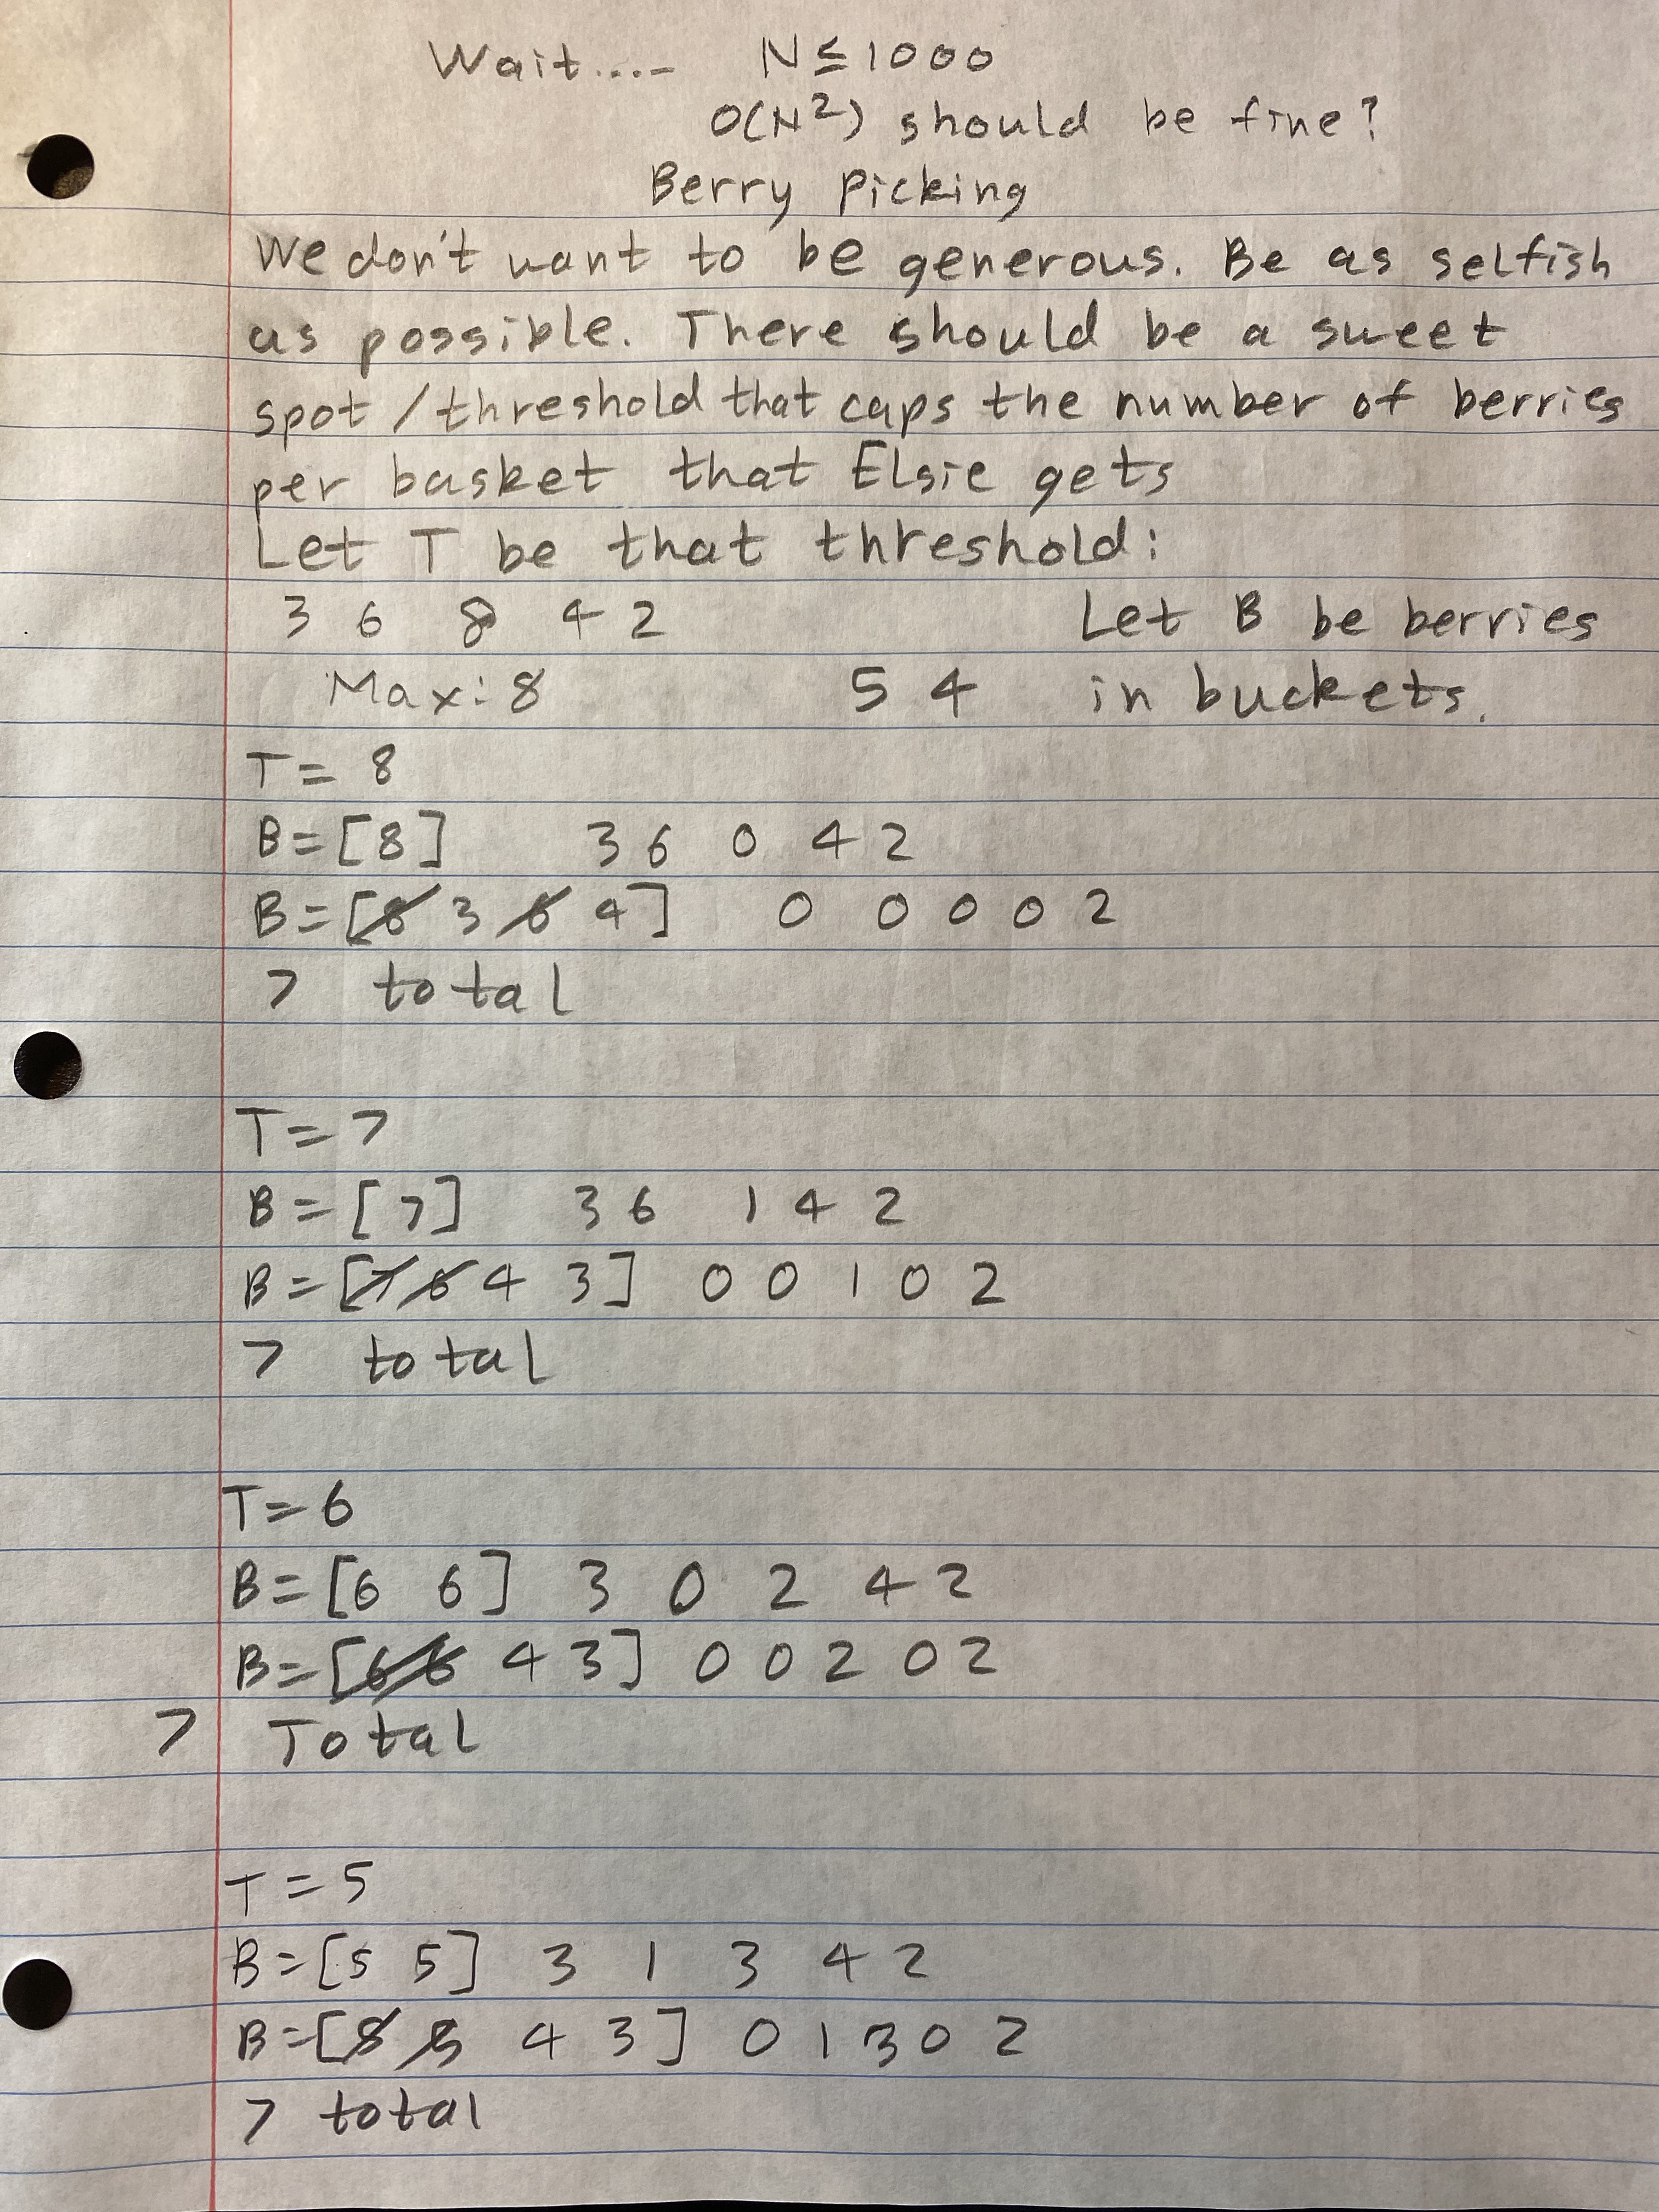 Wait.... N ≤ 1000
O(N²) should be fine?
Berry Picking
We don't want to be generous. Be as selfish
as possible. There should be a sweet
spot / threshold that caps the number of berries
per basket that Elsie gets
Let T be that threshold:
3 6 8 4 2 Let B be berries
Max: 8 5 4 in buckets.
T = 8
B = [8] 3 6 0 4 2
B = [8 3 6 4] 0 0 0 0 2
7 total
T = 7
B = [7] 3 6 1 4 2
B = [7 6 4 3] 0 0 1 0 2
7 total
T = 6
B = [6 6] 3 0 2 4 2
B = [6 6 4 3] 0 0 2 0 2
7 Total
T = 5
B = [5 5] 3 1 3 4 2
B = [5 5 4 3] 0 1 3 0 2
7 total